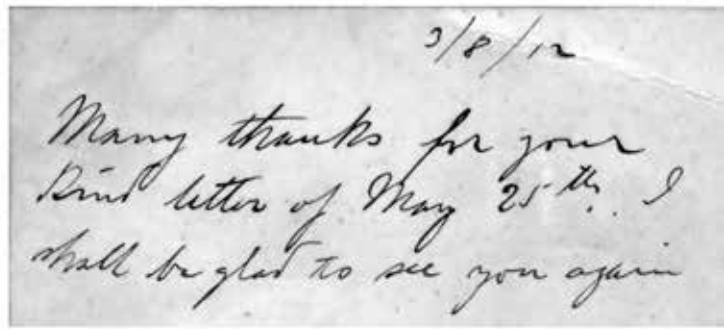 3/8/12
Many thanks for your
kind letter of May 25th. I
shall be glad to see you again